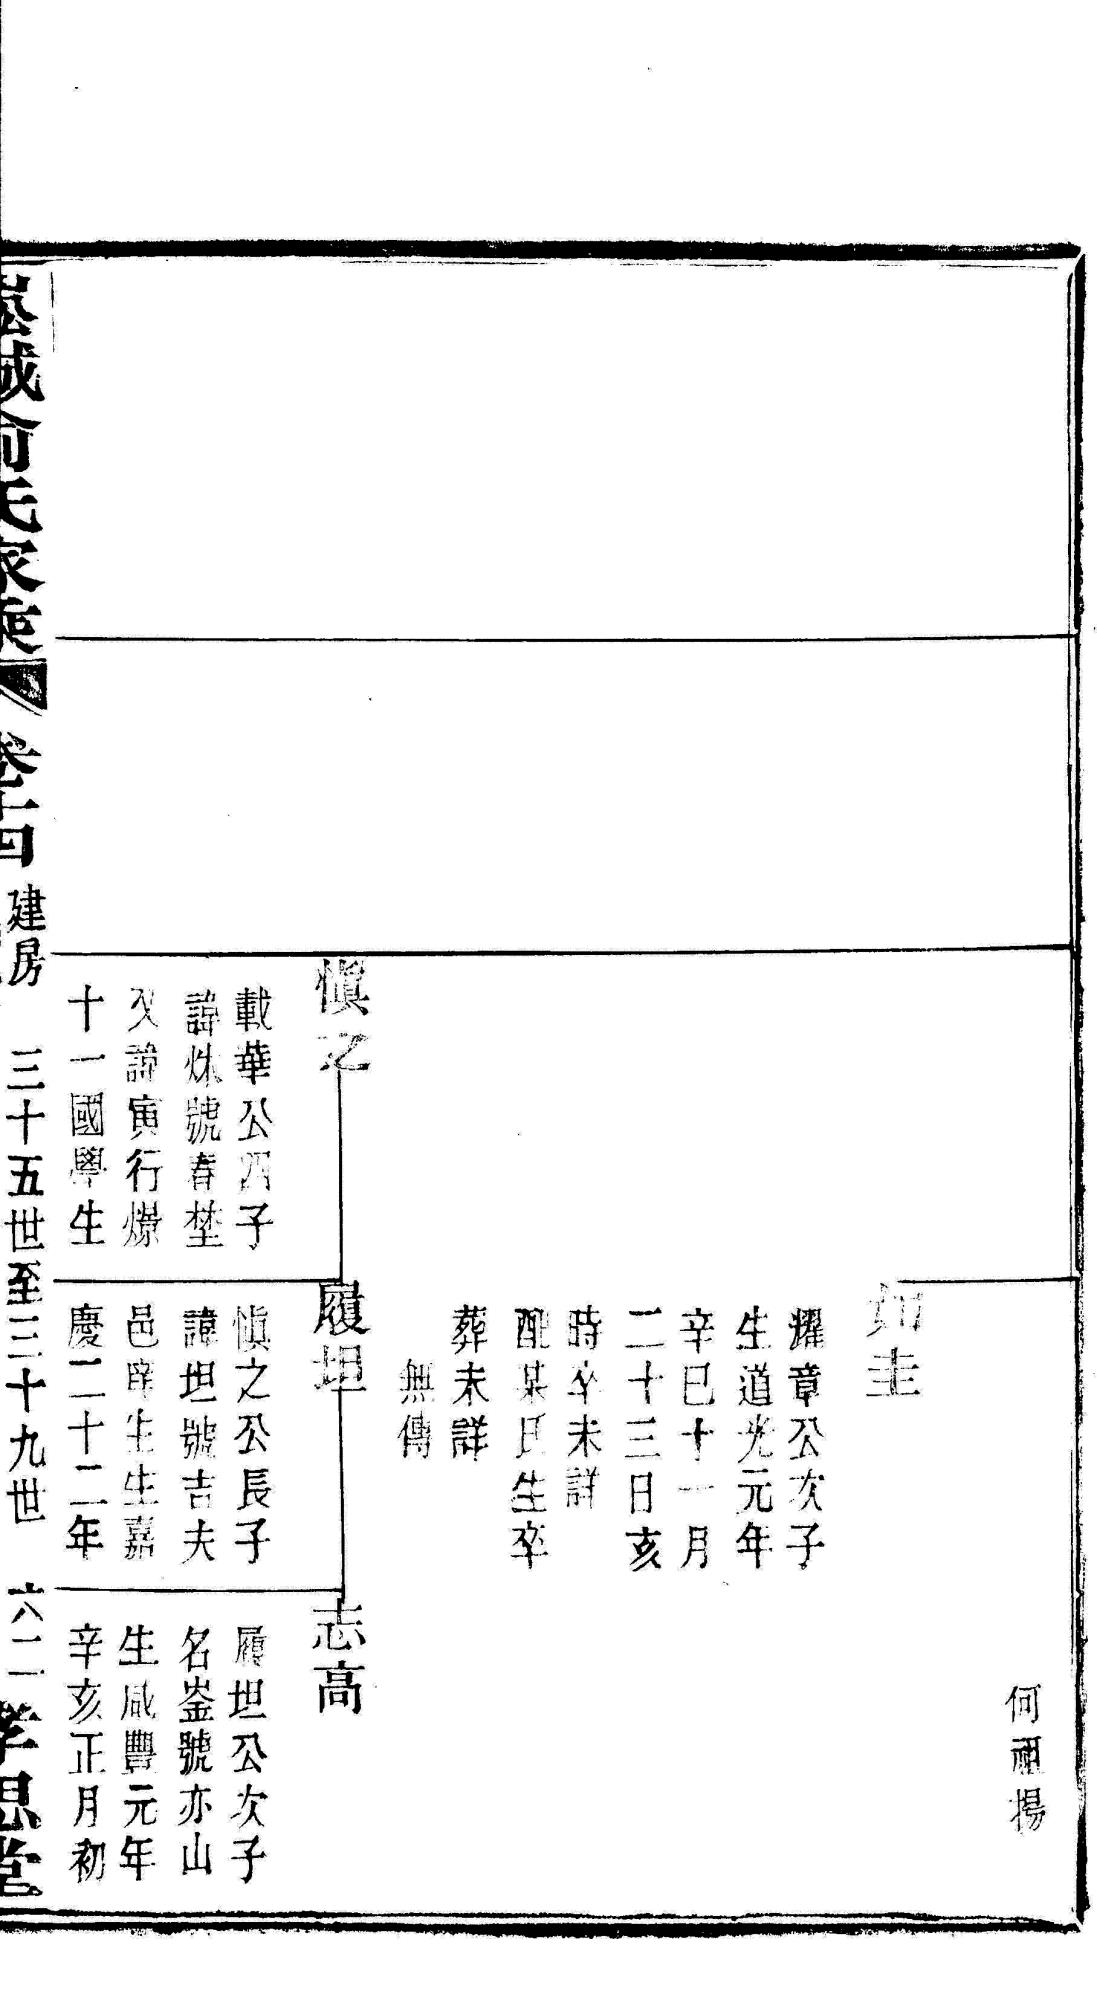 何祖揚
如圭
耀章公次子
生道光元年
辛巳十一月
二十三日亥
時卒未詳
配某氏生卒
葬未詳
無傳
慎之
載華公四子
諱烌號春埜
又諱寅行爆
十一國學生
履坦
慎之公長子
諱坦號吉夫
邑庠生生嘉
慶二十二年
志高
履坦公次子
名崟號亦山
生咸豐元年
辛亥正月初
城俞氏家乘 卷十四 建房 三十五世至三十九世 六二 孝思堂